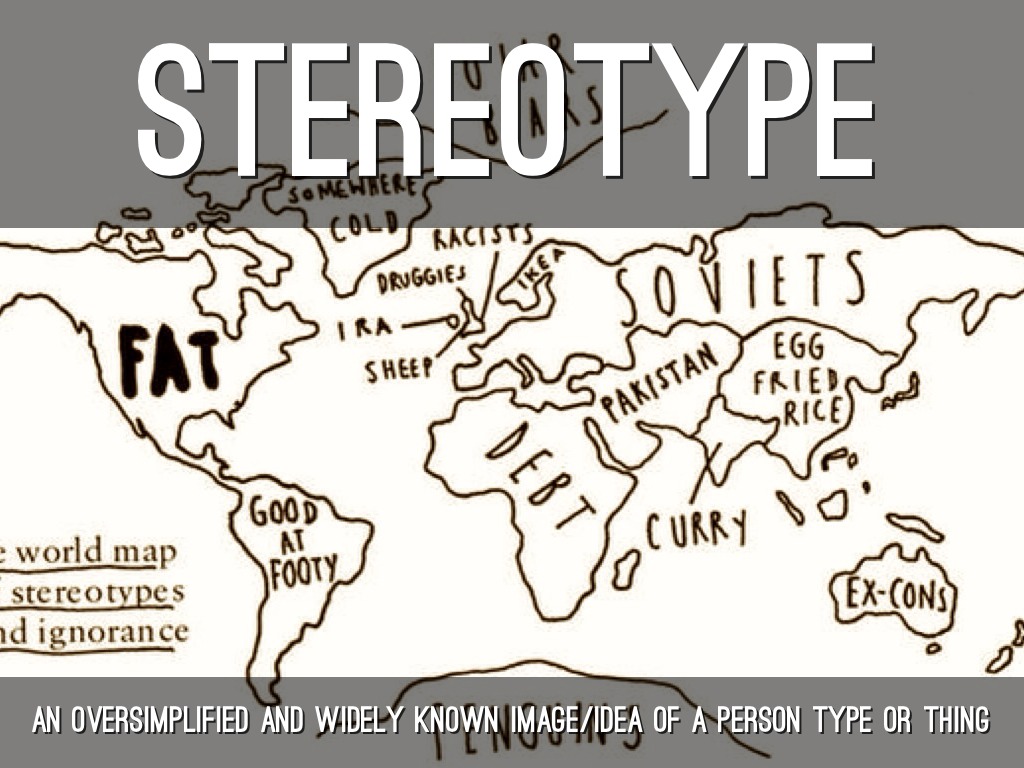 STEREOTYPE
BARS
SOMEWHERE
COLD
RACISTS
DRUGGIES
IKEA
SOVIETS
IRA
SHEEP
FAT
PAKISTAN
EGG
FRIED
RICE
DEBT
CURRY
GOOD
AT
FOOTY
EX-CONS
world map
stereotypes
ignorance
PENGUINS
AN OVERSIMPLIFIED AND WIDELY KNOWN IMAGE/IDEA OF A PERSON TYPE OR THING